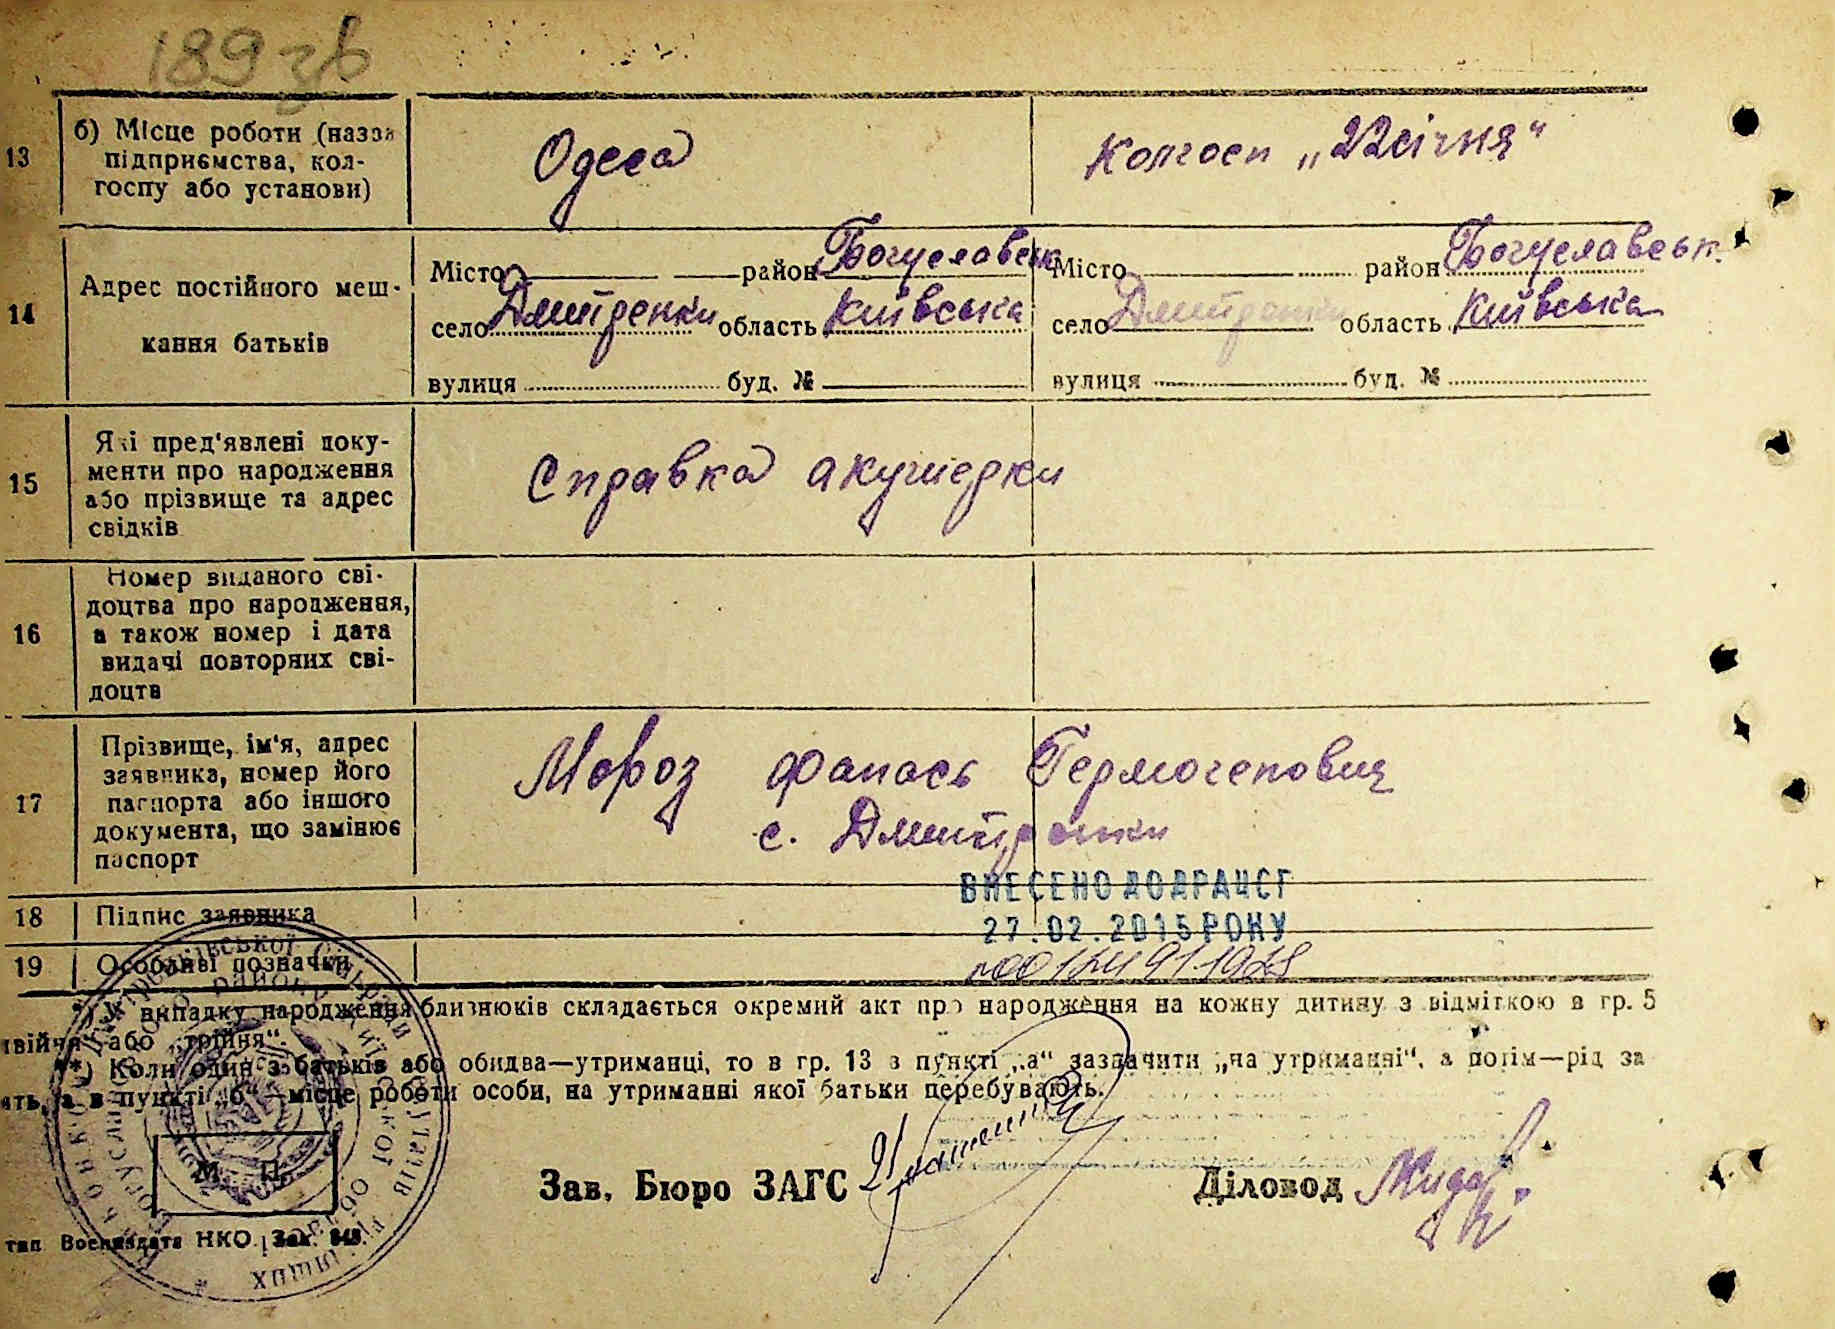 189 зв
13
б) Місце роботи (назва
підприємства, кол-
госпу або установи)
Одеса
Колгосп „22 січня“
14
Адрес постійного меш-
кання батьків
Місто район Богуславськ
село Дмитренки область Київська
вулиця буд. №
Місто район Богуславськ.
село Дмитренки область Київська
вулиця буд. №
15
Які пред'явлені доку-
менти про народження
або прізвище та адрес
свідків
Справка акушерки
16
Номер виданого сві-
доцтва про народження,
а також номер і дата
видачі повторних сві-
доцтв
17
Прізвище, ім'я, адрес
заявника, номер його
паспорта або іншого
документа, що замінює
паспорт
Мороз Фанась Гермогенович
с. Дмитренки
ВНЕСЕНО ДО ДРАЦСГ
27.02.2015 РОКУ
18
Підпис заявника
19
Особливі позначки
*) У випадку народження близнюків складається окремий акт про народження на кожну дитину з відміткою в гр. 5
двійня“ або „трійня“.
**) Коли один з батьків або обидва—утриманці, то в гр. 13 в пункті „а“ зазначити „на утриманні“, а потім—рід за
ять, а в пункті „б“—місце роботи особи, на утриманні якої батьки перебувають.
М. П.
Зав. Бюро ЗАГС
Діловод
тип Воениздата НКО. Зак. 848